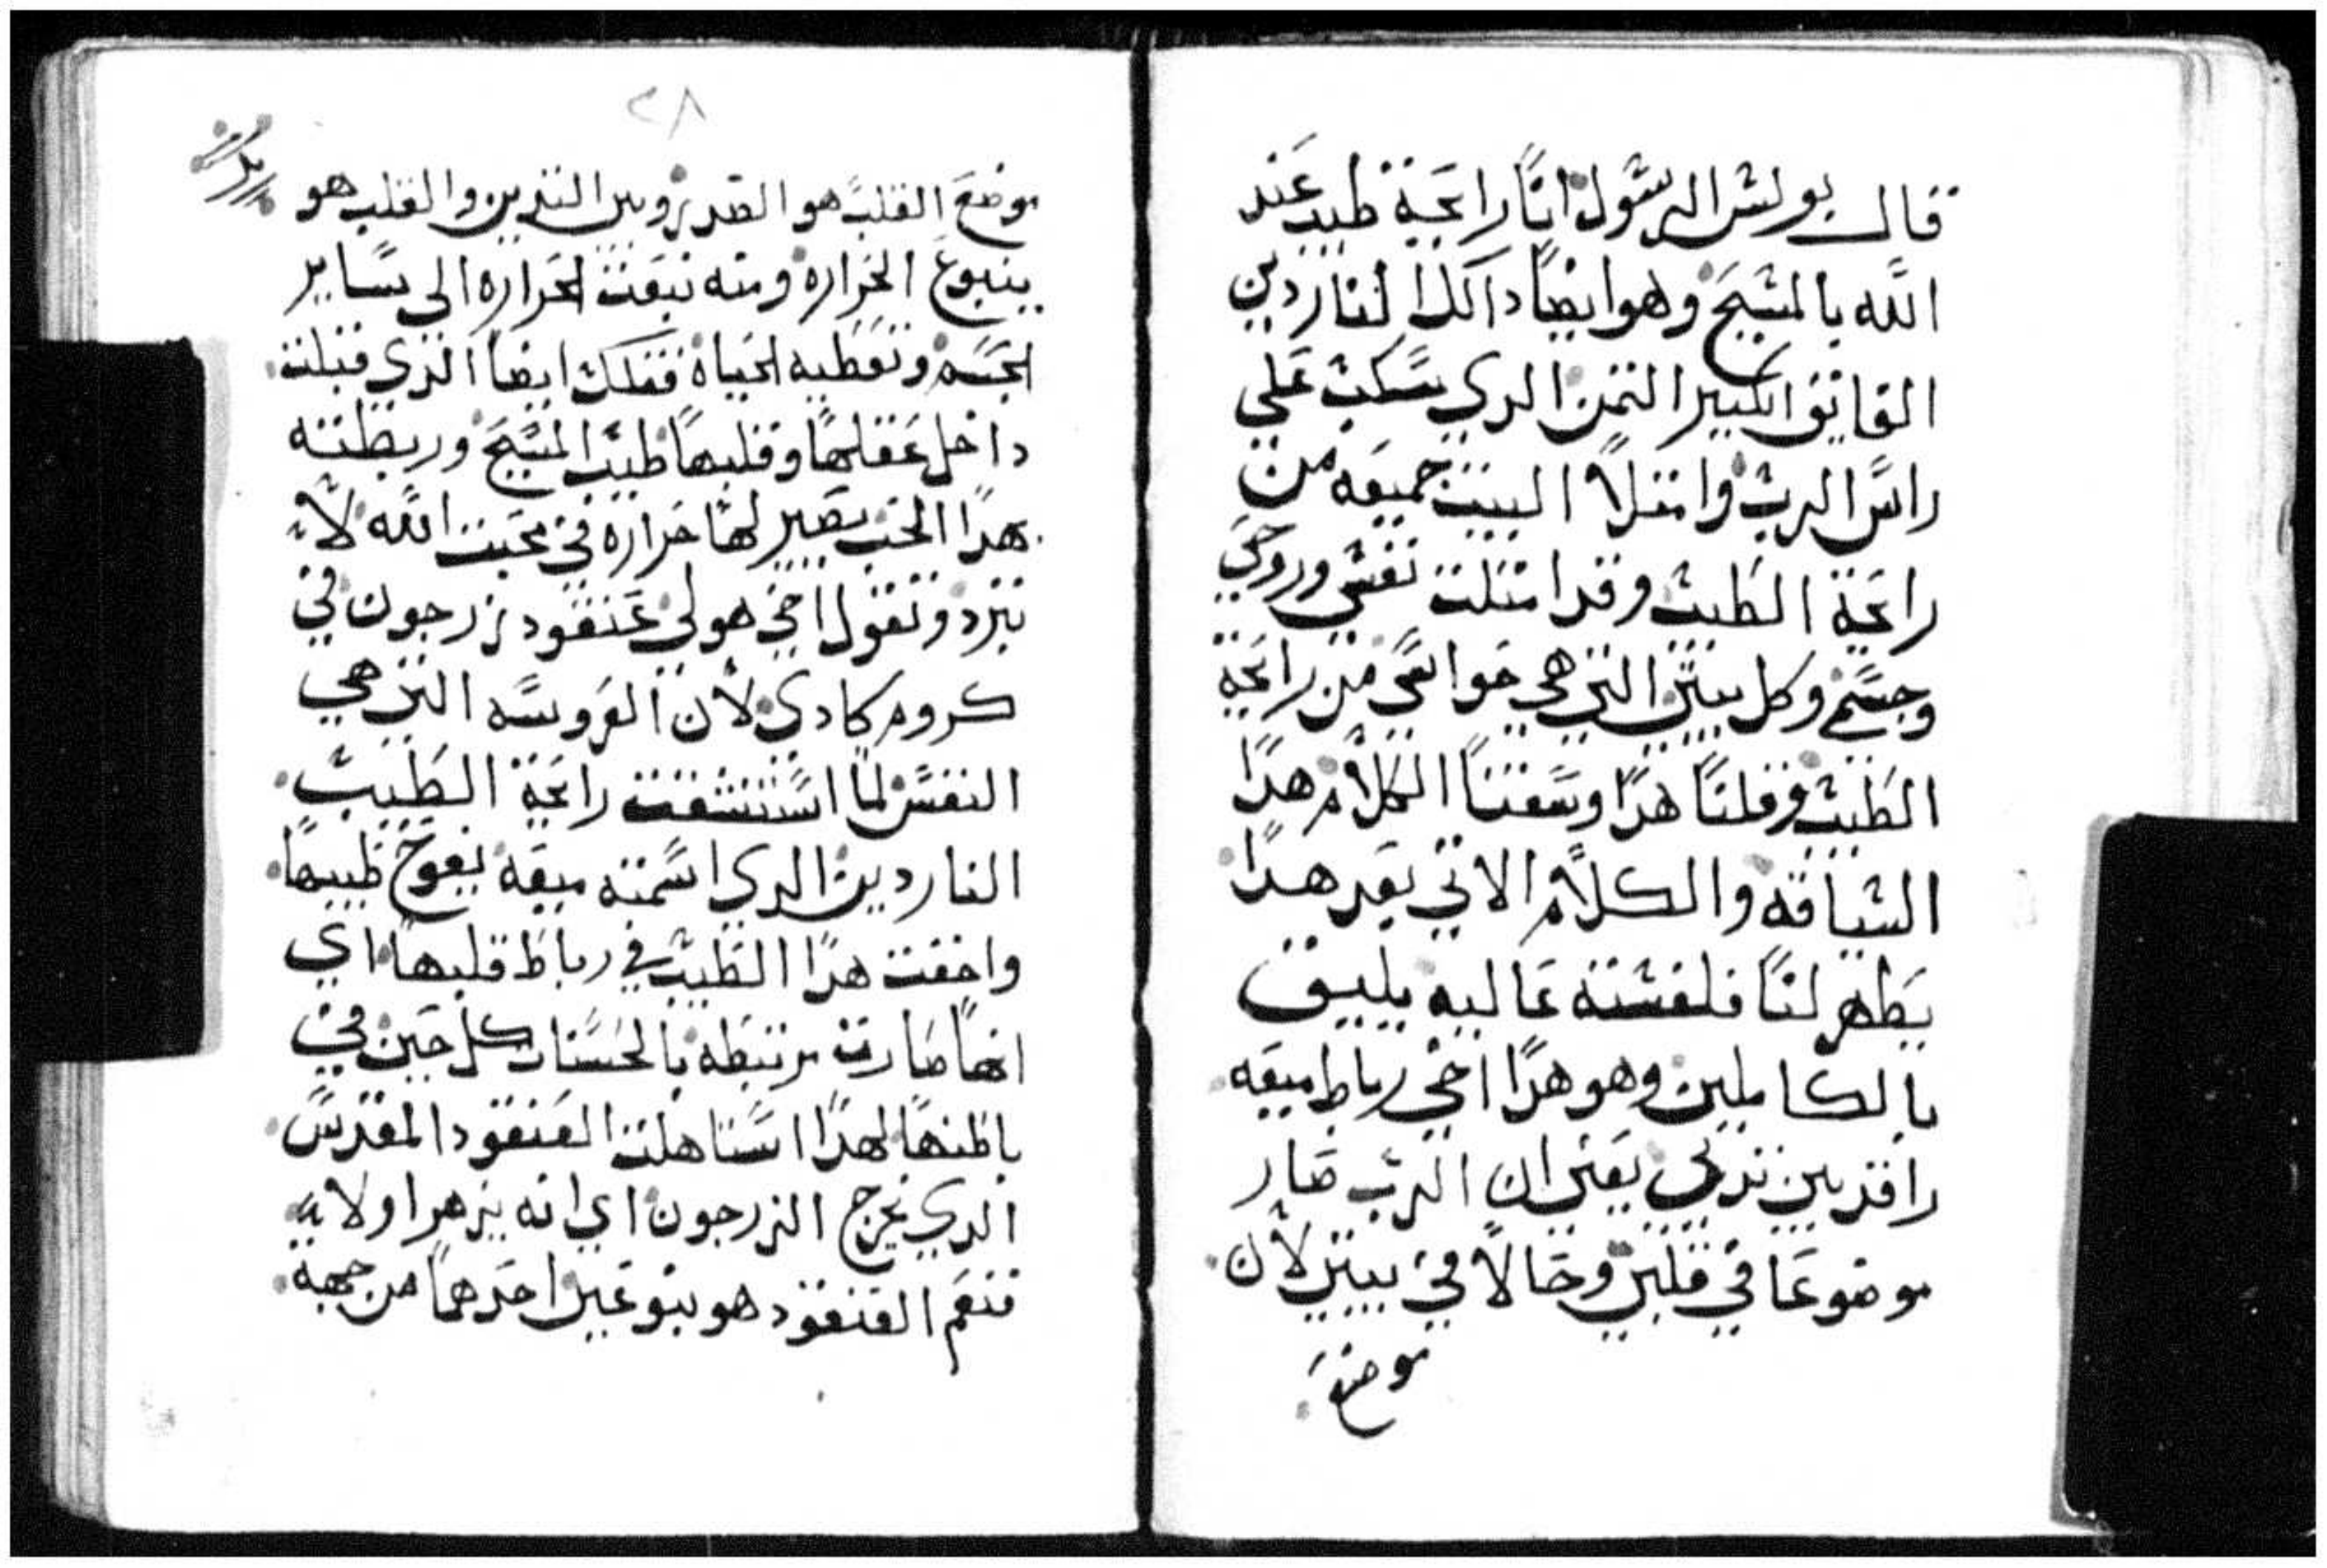 قال بولس الرسول انا رايحة طيب عند
الله بالمسيح وهو ايضا داك الناردين
الفايق الكبير التمن الدي سكب علي
راس الرب وامتلا البيت جميعه من
رايحة الطيب وقد امتلت نفسي وروحي
وجسمي وكل بيتي التي هي حواسي من رايحة
الطيب فقلنا هدا وسقنا الكلام هدا
السياقه والكلام الاتي بعد هدا
يظهر لنا فلسفته عاليه يليق
بالكاملين وهو هدا اخي رباط ميعه
راقد بين تديي يعني ان الرب صار
موضوعا في قلبي وحالا في بيتي لان
موضع
٢٨
موضع القلب هو الصدر وبين التديين والقلب هو
ينبوع الحراره ومنه تبعت الحراره الى ساير
الجسم وتعطيه الحياة فتلك ايضا الدي قبلت
داخل عقلها وقلبها طيب المسيح وربطته
بهدا الحب يصير لها حراره في محبت الله لا
تبرد وتقول اخي هو لي عنقود زرجون في
كروم كادي لان العروسه التي هي
النفس لما استنشقت رايحة الطيب
الناردين الدي اسمته ميعه يفوح طيبها
واخفت هدا الطيب في رباط قلبها اي
انها صارت مرتبطه بالحسنات كل حين في
باطنها لهدا استاهلت العنقود المقدس
الدي يخرج الزرجون اي انه يزهر اولا
فنعم العنقود هو بنوعين احدهما من جهة